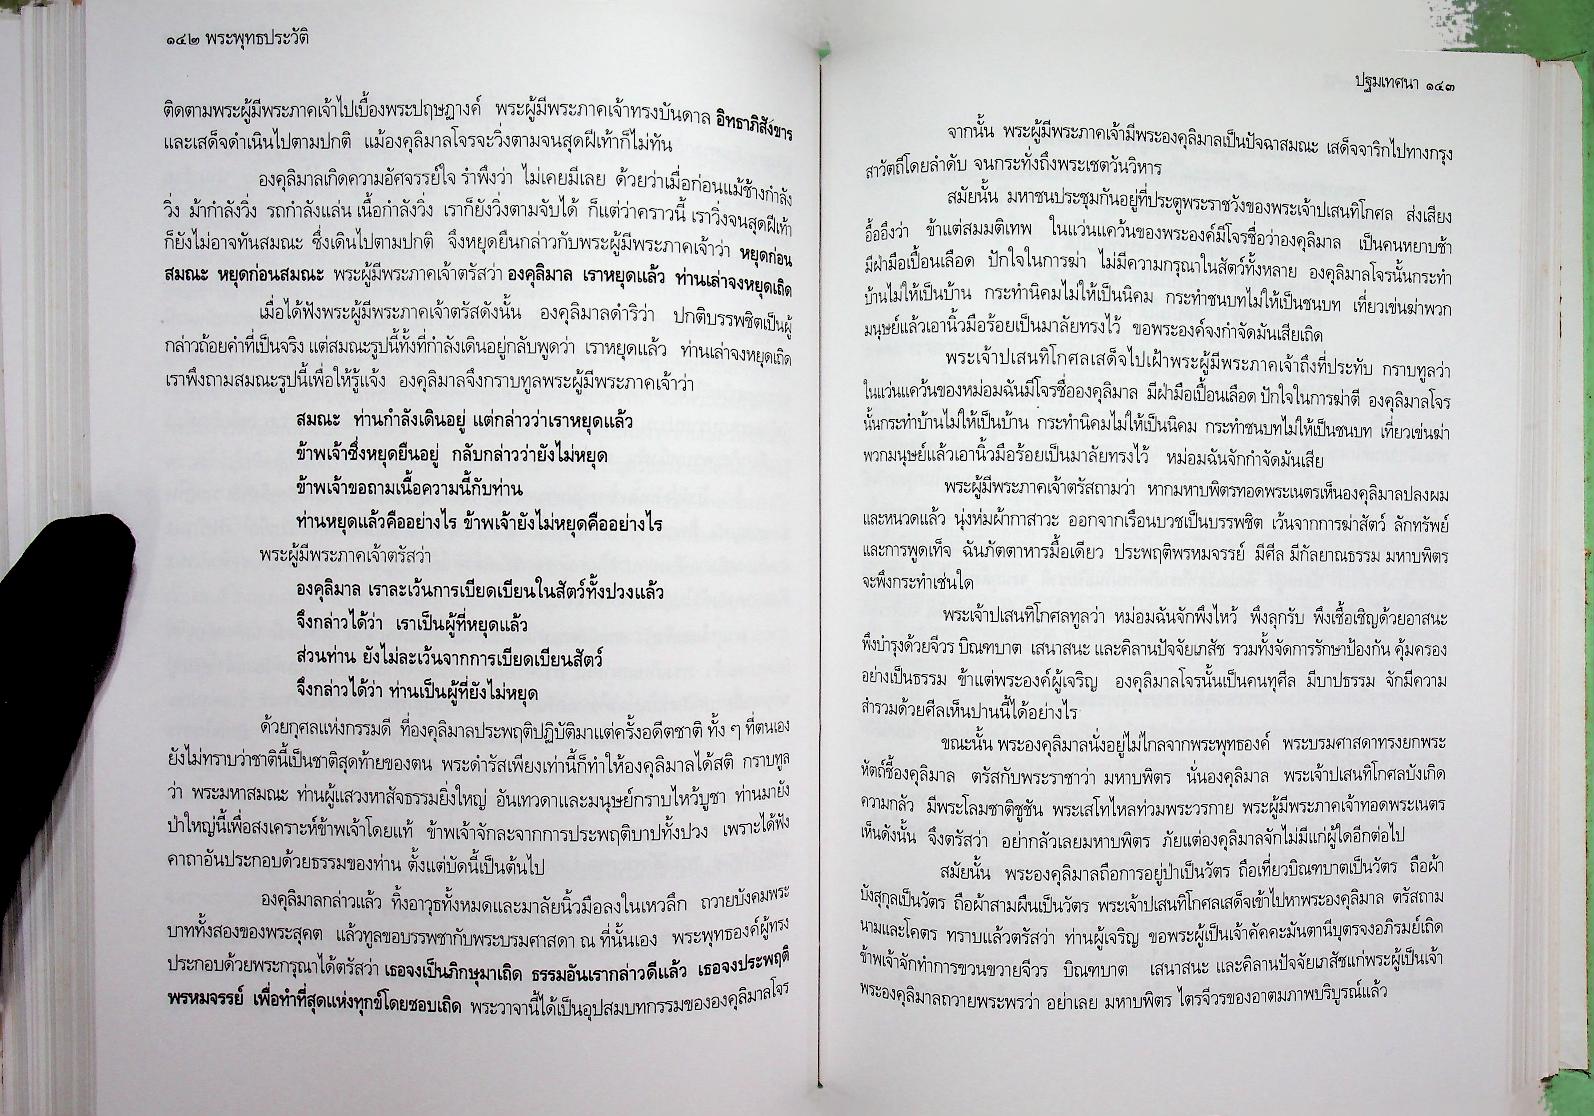 ๑๔๒ พระพุทธประวัติ
ติดตามพระผู้มีพระภาคเจ้าไปเบื้องพระปฤษฎางค์ พระผู้มีพระภาคเจ้าทรงบันดาล อิทธาภิสังขาร
และเสด็จดำเนินไปตามปกติ แม้องคุลิมาลโจรจะวิ่งตามจนสุดฝีเท้าก็ไม่ทัน
องคุลิมาลเกิดความอัศจรรย์ใจ รำพึงว่า ไม่เคยมีเลย ด้วยว่าเมื่อก่อนแม้ช้างกำลัง
วิ่ง ม้ากำลังวิ่ง รถกำลังแล่น เนื้อกำลังวิ่ง เราก็ยังวิ่งตามจับได้ ก็แต่ว่าคราวนี้ เราวิ่งจนสุดฝีเท้า
ก็ยังไม่อาจทันสมณะ ซึ่งเดินไปตามปกติ จึงหยุดยืนกล่าวกับพระผู้มีพระภาคเจ้าว่า หยุดก่อน
สมณะ หยุดก่อนสมณะ พระผู้มีพระภาคเจ้าตรัสว่า องคุลิมาล เราหยุดแล้ว ท่านเล่าจงหยุดเถิด
เมื่อได้ฟังพระผู้มีพระภาคเจ้าตรัสดังนั้น องคุลิมาลดำริว่า ปกติบรรพชิตเป็นผู้
กล่าวถ้อยคำที่เป็นจริง แต่สมณะรูปนี้ทั้งที่กำลังเดินอยู่กลับพูดว่า เราหยุดแล้ว ท่านเล่าจงหยุดเถิด
เราพึงถามสมณะรูปนี้เพื่อให้รู้แจ้ง องคุลิมาลจึงกราบทูลพระผู้มีพระภาคเจ้าว่า
สมณะ ท่านกำลังเดินอยู่ แต่กล่าวว่าเราหยุดแล้ว
ข้าพเจ้าซึ่งหยุดยืนอยู่ กลับกล่าวว่ายังไม่หยุด
ข้าพเจ้าขอถามเนื้อความนี้กับท่าน
ท่านหยุดแล้วคืออย่างไร ข้าพเจ้ายังไม่หยุดคืออย่างไร
พระผู้มีพระภาคเจ้าตรัสว่า
องคุลิมาล เราละเว้นการเบียดเบียนในสัตว์ทั้งปวงแล้ว
จึงกล่าวได้ว่า เราเป็นผู้ที่หยุดแล้ว
ส่วนท่าน ยังไม่ละเว้นจากการเบียดเบียนสัตว์
จึงกล่าวได้ว่า ท่านเป็นผู้ที่ยังไม่หยุด
ด้วยกุศลแห่งกรรมดี ที่องคุลิมาลประพฤติปฏิบัติมาแต่ครั้งอดีตชาติ ทั้ง ๆ ที่ตนเอง
ยังไม่ทราบว่าชาตินี้เป็นชาติสุดท้ายของตน พระดำรัสเพียงเท่านี้ก็ทำให้องคุลิมาลได้สติ กราบทูล
ว่า พระมหาสมณะ ท่านผู้แสวงหาสัจธรรมยิ่งใหญ่ อันเทวดาและมนุษย์กราบไหว้บูชา ท่านมายัง
ป่าใหญ่นี้เพื่อสงเคราะห์ข้าพเจ้าโดยแท้ ข้าพเจ้าจักละจากการประพฤติบาปทั้งปวง เพราะได้ฟัง
คาถาอันประกอบด้วยธรรมของท่าน ตั้งแต่บัดนี้เป็นต้นไป
องคุลิมาลกล่าวแล้ว ทิ้งอาวุธทั้งหมดและมาลัยนิ้วมือลงในเหวลึก ถวายบังคมพระ
บาททั้งสองของพระสุคต แล้วทูลขอบรรพชากับพระบรมศาสดา ณ ที่นั้นเอง พระพุทธองค์ผู้ทรง
ประกอบด้วยพระกรุณาได้ตรัสว่า เธอจงเป็นภิกษุมาเถิด ธรรมอันเรากล่าวดีแล้ว เธอจงประพฤติ
พรหมจรรย์ เพื่อทำที่สุดแห่งทุกข์โดยชอบเถิด พระวาจานี้ได้เป็นอุปสมบทกรรมขององคุลิมาลโจร
ปฐมเทศนา ๑๔๓
จากนั้น พระผู้มีพระภาคเจ้ามีพระองคุลิมาลเป็นปัจฉาสมณะ เสด็จจาริกไปทางกรุง
สาวัตถีโดยลำดับ จนกระทั่งถึงพระเชตวันวิหาร
สมัยนั้น มหาชนประชุมกันอยู่ที่ประตูพระราชวังของพระเจ้าปเสนทิโกศล ส่งเสียง
อื้ออึงว่า ข้าแต่สมมติเทพ ในแว่นแคว้นของพระองค์มีโจรชื่อว่าองคุลิมาล เป็นคนหยาบช้า
มีฝ่ามือเปื้อนเลือด ปักใจในการฆ่า ไม่มีความกรุณาในสัตว์ทั้งหลาย องคุลิมาลโจรนั้นกระทำ
บ้านไม่ให้เป็นบ้าน กระทำนิคมไม่ให้เป็นนิคม กระทำชนบทไม่ให้เป็นชนบท เที่ยวเข่นฆ่าพวก
มนุษย์แล้วเอานิ้วมือร้อยเป็นมาลัยทรงไว้ ขอพระองค์จงกำจัดมันเสียเถิด
พระเจ้าปเสนทิโกศลเสด็จไปเฝ้าพระผู้มีพระภาคเจ้าถึงที่ประทับ กราบทูลว่า
ในแว่นแคว้นของหม่อมฉันมีโจรชื่อองคุลิมาล มีฝ่ามือเปื้อนเลือด ปักใจในการฆ่าตี องคุลิมาลโจร
นั้นกระทำบ้านไม่ให้เป็นบ้าน กระทำนิคมไม่ให้เป็นนิคม กระทำชนบทไม่ให้เป็นชนบท เที่ยวเข่นฆ่า
พวกมนุษย์แล้วเอานิ้วมือร้อยเป็นมาลัยทรงไว้ หม่อมฉันจักกำจัดมันเสีย
พระผู้มีพระภาคเจ้าตรัสถามว่า หากมหาบพิตรทอดพระเนตรเห็นองคุลิมาลปลงผม
และหนวดแล้ว นุ่งห่มผ้ากาสาวะ ออกจากเรือนบวชเป็นบรรพชิต เว้นจากการฆ่าสัตว์ ลักทรัพย์
และการพูดเท็จ ฉันภัตตาหารมื้อเดียว ประพฤติพรหมจรรย์ มีศีล มีกัลยาณธรรม มหาบพิตร
จะพึงกระทำเช่นใด
พระเจ้าปเสนทิโกศลทูลว่า หม่อมฉันจักพึงไหว้ พึงลุกรับ พึงเชื้อเชิญด้วยอาสนะ
พึงบำรุงด้วยจีวร บิณฑบาต เสนาสนะ และคิลานปัจจัยเภสัช รวมทั้งจัดการรักษาป้องกัน คุ้มครอง
อย่างเป็นธรรม ข้าแต่พระองค์ผู้เจริญ องคุลิมาลโจรนั้นเป็นคนทุศีล มีบาปธรรม จักมีความ
สำรวมด้วยศีลเห็นปานนี้ได้อย่างไร
ขณะนั้น พระองคุลิมาลนั่งอยู่ไม่ไกลจากพระพุทธองค์ พระบรมศาสดาทรงยกพระ
หัตถ์ชี้องคุลิมาล ตรัสกับพระราชาว่า มหาบพิตร นั่นองคุลิมาล พระเจ้าปเสนทิโกศลบังเกิด
ความกลัว มีพระโลมชาติชูชัน พระเสโทไหลท่วมพระวรกาย พระผู้มีพระภาคเจ้าทอดพระเนตร
เห็นดังนั้น จึงตรัสว่า อย่ากลัวเลยมหาบพิตร ภัยแต่องคุลิมาลจักไม่มีแก่ผู้ใดอีกต่อไป
สมัยนั้น พระองคุลิมาลถือการอยู่ป่าเป็นวัตร ถือเที่ยวบิณฑบาตเป็นวัตร ถือผ้า
บังสุกุลเป็นวัตร ถือผ้าสามผืนเป็นวัตร พระเจ้าปเสนทิโกศลเสด็จเข้าไปหาพระองคุลิมาล ตรัสถาม
นามและโคตร ทราบแล้วตรัสว่า ท่านผู้เจริญ ขอพระผู้เป็นเจ้าคัคคะมันตานีบุตรจงอภิรมย์เถิด
ข้าพเจ้าจักทำการขวนขวายจีวร บิณฑบาต เสนาสนะ และคิลานปัจจัยเภสัชแก่พระผู้เป็นเจ้า
พระองคุลิมาลถวายพระพรว่า อย่าเลย มหาบพิตร ไตรจีวรของอาตมภาพบริบูรณ์แล้ว